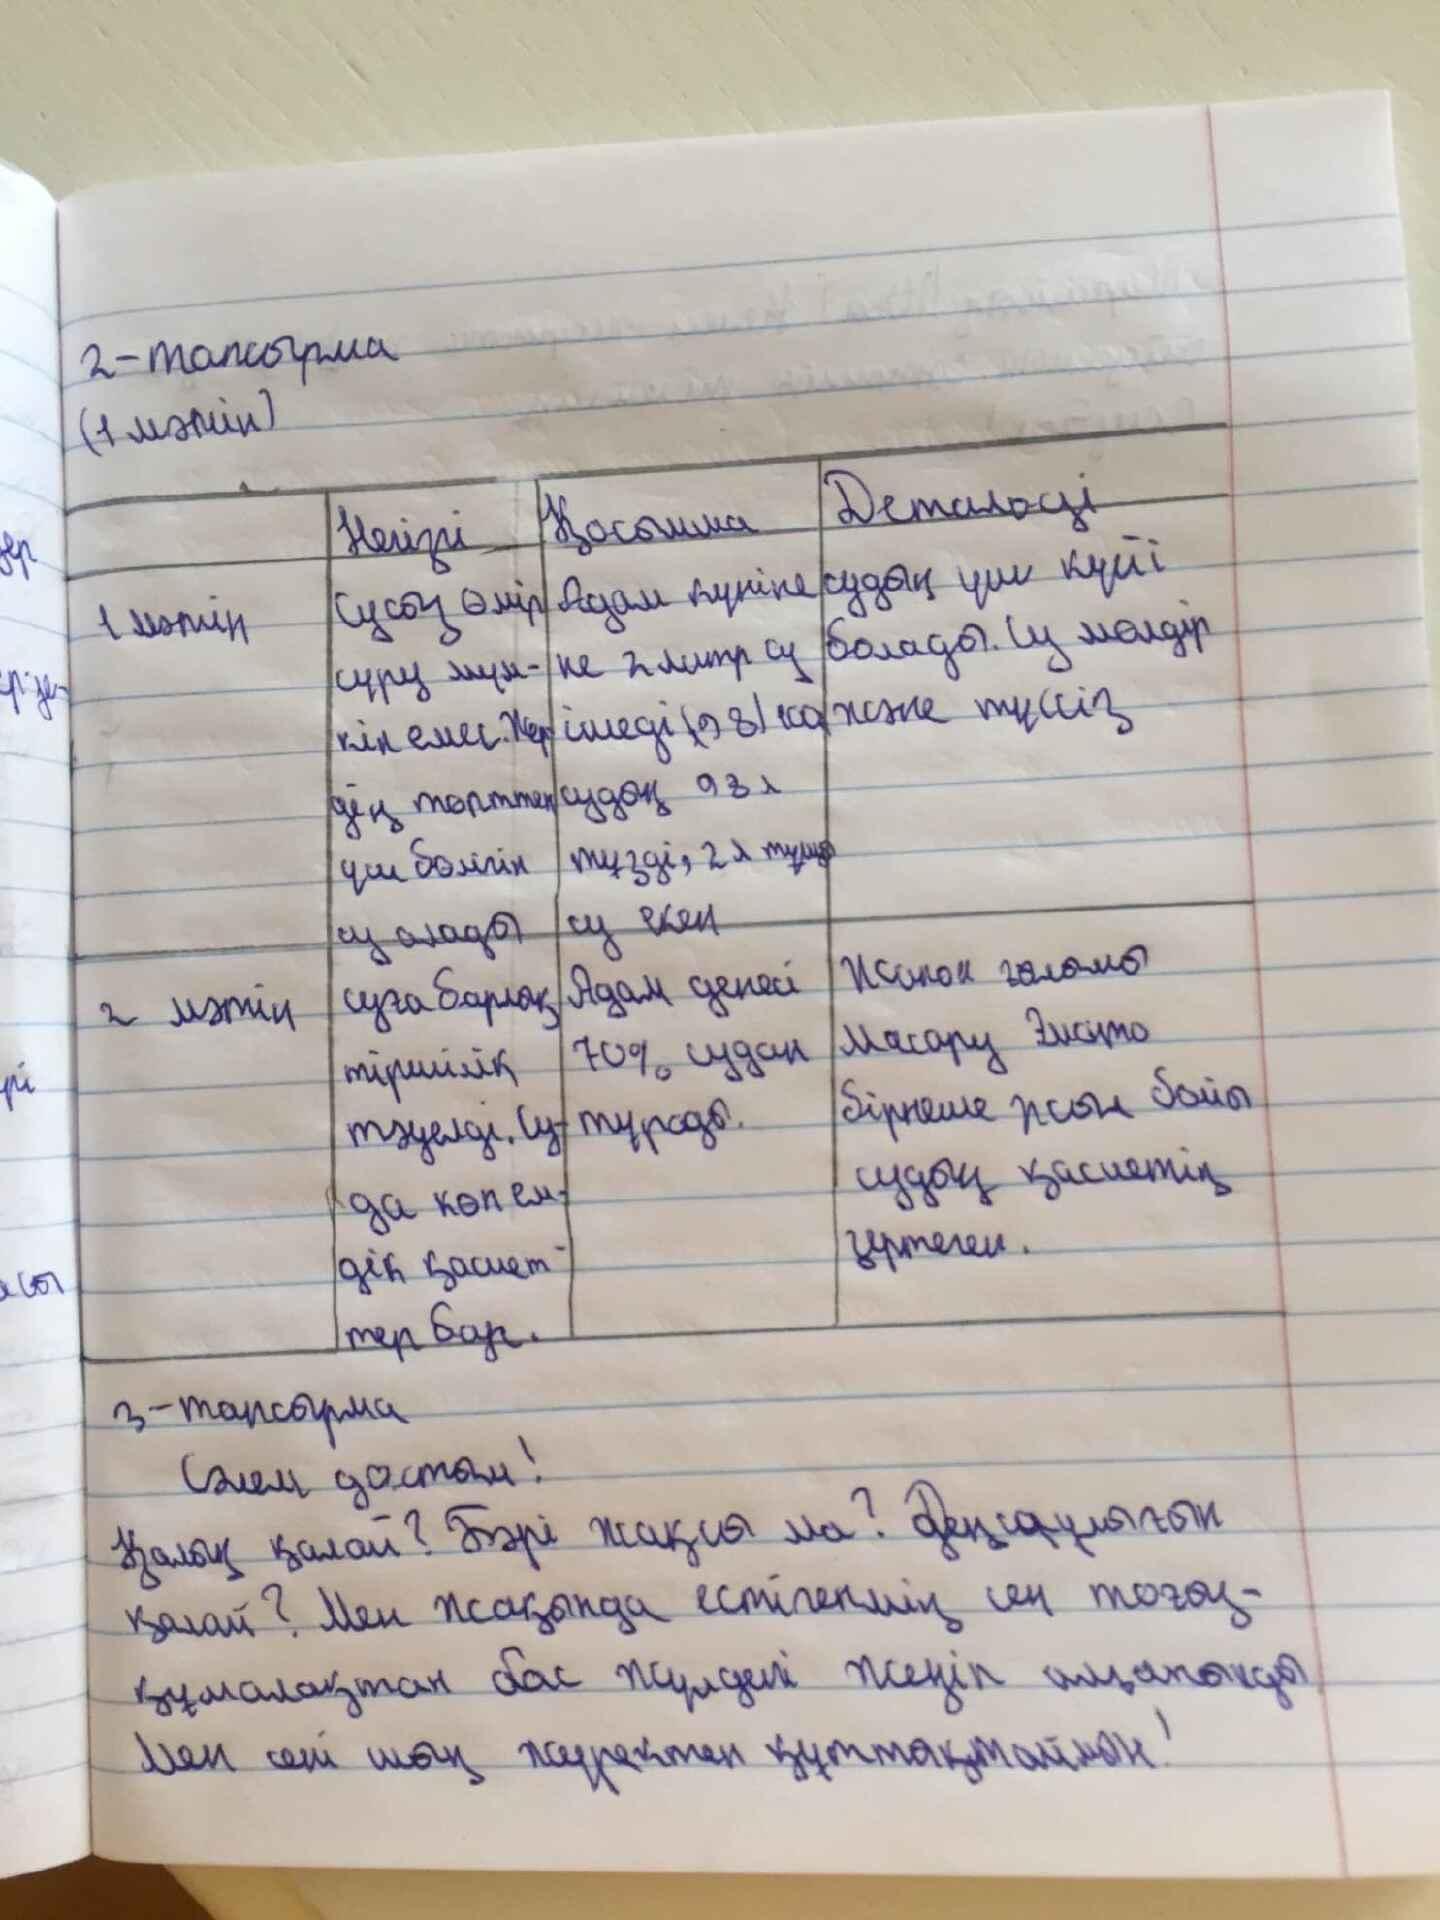 2-тапсырма
(1 мәтін)
Негізгі Қосымша Детальді
1 мәтін
Сусыз өмір
сүру мүм-
кін емес. Жер
дің төрттен
үш бөлігін
су алады
Адам күніне
не 2 литр су
ішеді
судың 93 л
тұзды, 2 л тұщы
су екен
судың үш күйі
болады. Су мөлдір
және түссіз
2 мәтін
суға барлық
тіршілік
тәуелді. Су-
да көп ем-
дік қасиет
тер бар.
Адам денесі
70% судан
тұрады.
Жапон ғалымы
Масару Эмото
бірнеше жыл бойы
судың қасиетін
зерттеген.
3-тапсырма
Сәлем достым!
Қалың қалай? Бәрі жақсы ма? Денсаулығын
қалай? Мен жақында естігенмін сен тоғыз-
құмалақтан бас жүлдені жеңіп алғаныңды
Мен сені шың жүректен құттықтаймын!